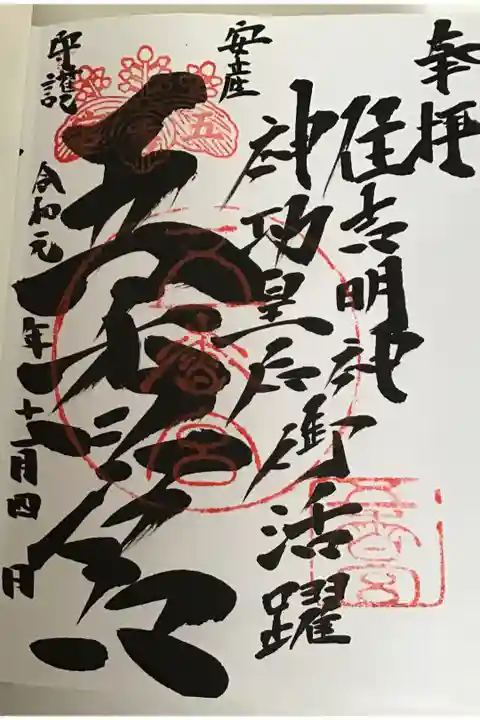 奉拝
住吉明神
神功皇后御活躍
安産
守護
五香宮
令和元年十二月四日
五香宮
五香宮